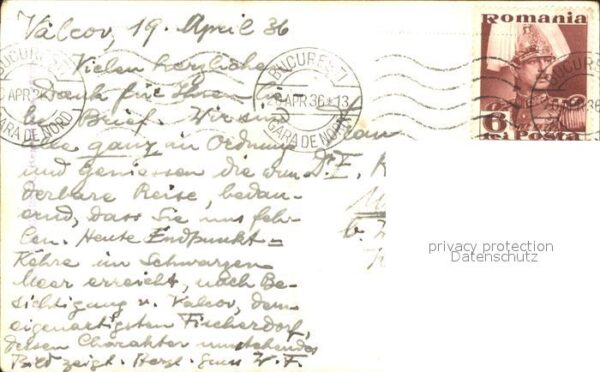 Valcov, 19. April 36
Vielen herzlichen
Dank für Ihren lie-
ben Brief. Wir sind
alle ganz in Ordnung
und geniessen die wun-
derbare Reise, bedau-
ernd, dass Sie uns feh-
len. Heute Endpunkt =
Kehre im Schwarzen
Meer erreicht, nach Be-
sichtigung v. Valcov, dem
eigenartigsten Fischerdorf,
dessen Charakter umstehendes
Bild zeigt. Herzl. Gruss W. F.
Romania
6
lei Posta
BUCUREȘTI
APR 36 - 13
GARA DE NORD
APR 2
GARA DE NORD
BUCUREȘTI
D. E.
privacy protection
Datenschutz